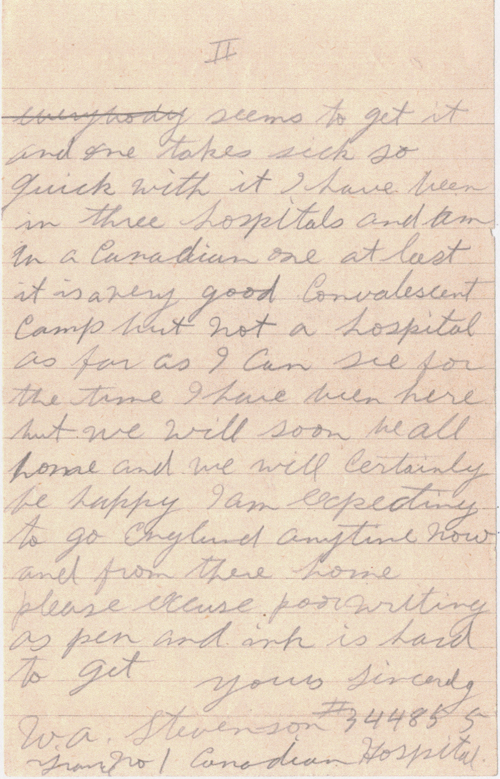 II
everybody seems to get it
and one takes sick so
quick with it I have been
in three hospitals and am
in a Canadian one at last
it is a very good Convalescent
Camp but not a hospital
as far as I can see for
the time I have been here
but we will soon be all
home and we will certainly
be happy I am expecting
to go England anytime now
and from there home
please excuse poor writing
as pen and ink is hard
to get yours sincerely
W.A. Stevenson #344855
No 1 Canadian Hospital